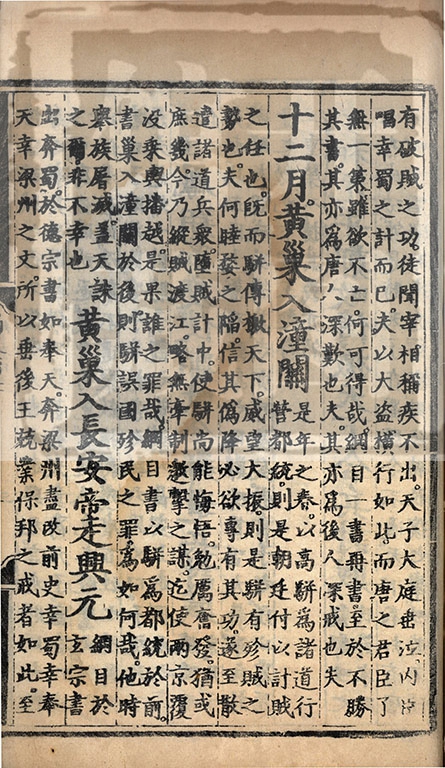 有破賊之功徒聞宰相稱疾不出天子大庭垂泣内臣
唱幸蜀之計而已夫以大盗橫行如此而唐之君臣了
無一策雖欲不亡何可得哉綱目一書再書至於不勝
其書其亦爲唐人深歎也夫其亦爲後人深戒也夫
十二月黄巢入潼關
是年之春以高駢爲諸道行
營都統則是朝廷付以討賊
之任也既而駢傳檄天下威望大振則是駢有殄賊之
勢也夫何睦婺之陷信其僞降必欲專有其功遂至散
遣諸道兵衆墮賊計中使駢尚能悔悟勉厲奮發猶或
庶幾今乃縱賊渡江略無牽制邀擊之謀迄使兩京覆
没乘輿播越是果誰之罪哉綱目書以駢爲都統於前
書巢入潼關於後則駢誤國殄民之罪爲如何哉他時
舉族屠滅蓋天誅
之爾非不幸也
黄巢入長安帝走興元
綱目於
玄宗書
出奔蜀於德宗書如奉天奔梁州盡改前史幸蜀幸奉
天幸梁州之文所以垂後王兢業保邦之戒者如此至